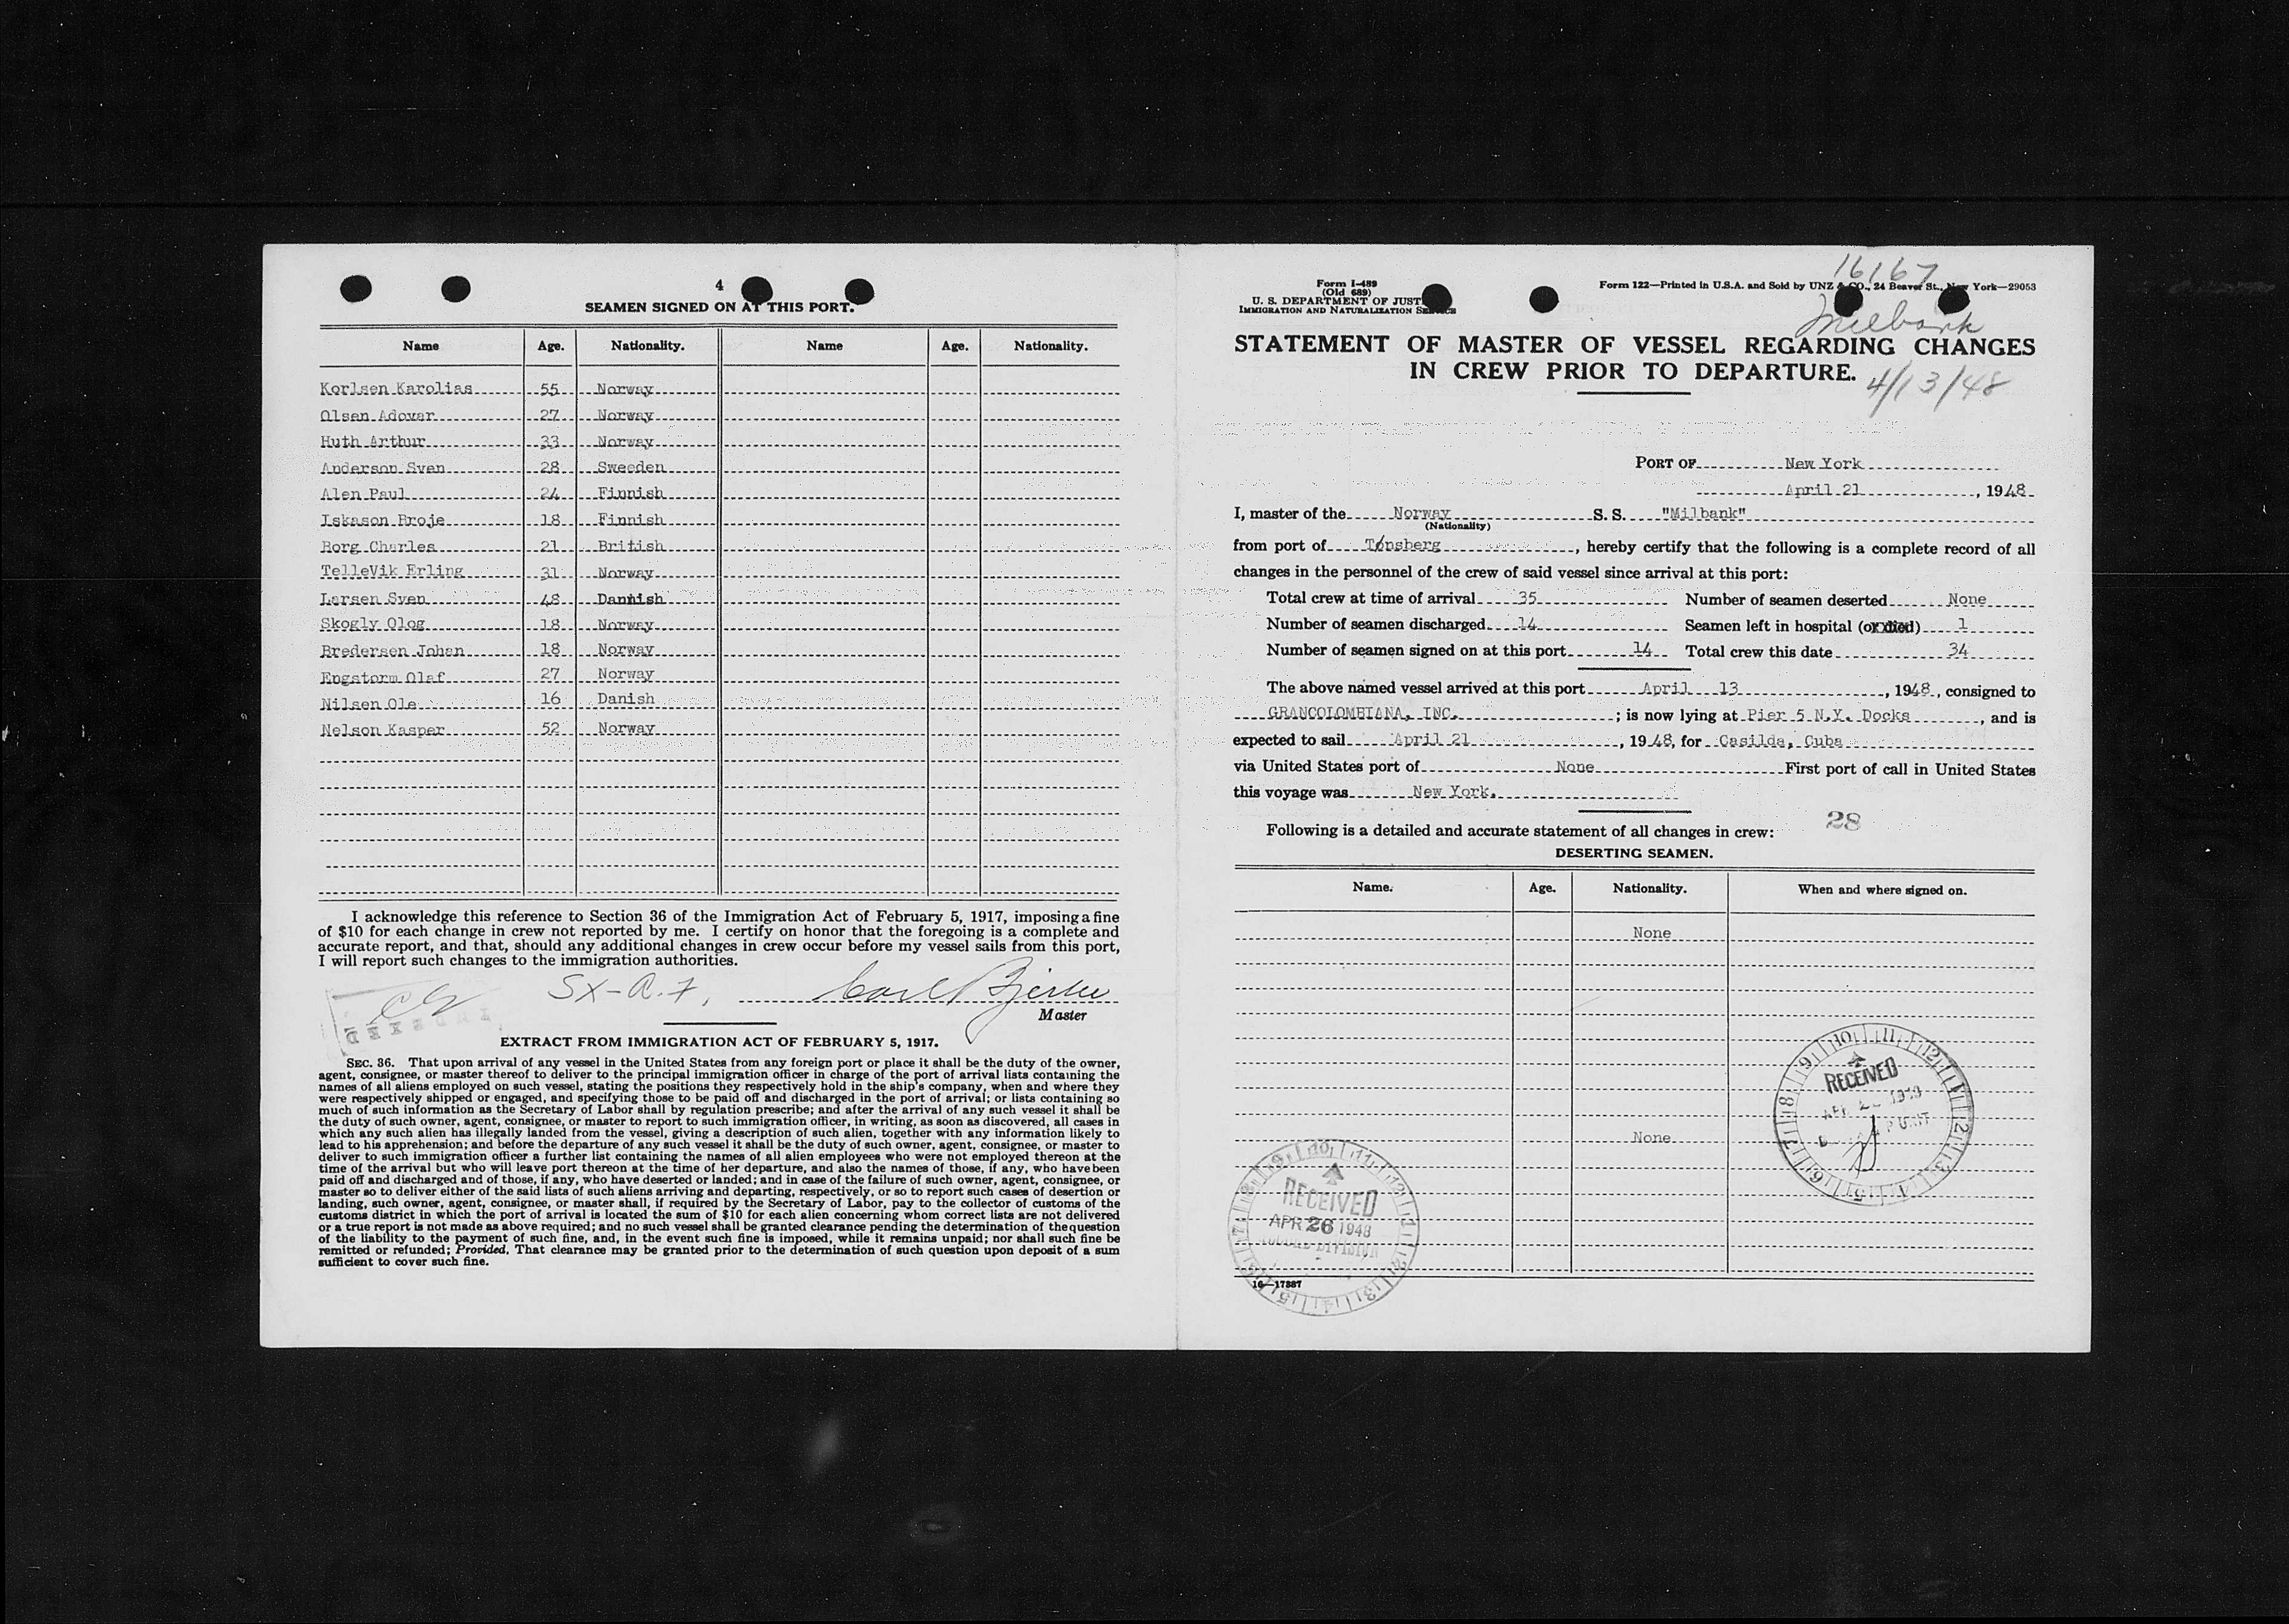 4
SEAMEN SIGNED ON AT THIS PORT.
Name Age. Nationality. Name Age. Nationality.
Korlsen Karolias 55 Norway
Olsen Adovar 27 Norway
Huth Arthur 33 Norway
Anderson Sven 28 Sweeden
Alen Paul 24 Finnish
Iskason Broje 18 Finnish
Borg Charles 21 British
TelleVik Erling 31 Norway
Larsen Sven 48 Dannish
Skogly Olog 18 Norway
Bredersen Johan 18 Norway
Engstorm Olaf 27 Norway
Nilsen Ole 16 Danish
Nelson Kasper 52 Norway
I acknowledge this reference to Section 36 of the Immigration Act of February 5, 1917, imposing a fine
of $10 for each change in crew not reported by me. I certify on honor that the foregoing is a complete and
accurate report, and that, should any additional changes in crew occur before my vessel sails from this port,
I will report such changes to the immigration authorities.
SX-a.7,
Master
INDEXED
EXTRACT FROM IMMIGRATION ACT OF FEBRUARY 5, 1917.
SEC. 36. That upon arrival of any vessel in the United States from any foreign port or place it shall be the duty of the owner,
agent, consignee, or master thereof to deliver to the principal immigration officer in charge of the port of arrival lists containing the
names of all aliens employed on such vessel, stating the positions they respectively hold in the ship's company, when and where they
were respectively shipped or engaged, and specifying those to be paid off and discharged in the port of arrival; or lists containing so
much of such information as the Secretary of Labor shall by regulation prescribe; and after the arrival of any such vessel it shall be
the duty of such owner, agent, consignee, or master to report to such immigration officer, in writing, as soon as discovered, all cases in
which any such alien has illegally landed from the vessel, giving a description of such alien, together with any information likely to
lead to his apprehension; and before the departure of any such vessel it shall be the duty of such owner, agent, consignee, or master to
deliver to such immigration officer a further list containing the names of all alien employees who were not employed thereon at the
time of the arrival but who will leave port thereon at the time of her departure, and also the names of those, if any, who have been
paid off and discharged and of those, if any, who have deserted or landed; and in case of the failure of such owner, agent, consignee, or
master so to deliver either of the said lists of such aliens arriving and departing, respectively, or so to report such cases of desertion or
landing, such owner, agent, consignee, or master shall, if required by the Secretary of Labor, pay to the collector of customs of the
customs district in which the port of arrival is located the sum of $10 for each alien concerning whom correct lists are not delivered
or a true report is not made as above required; and no such vessel shall be granted clearance pending the determination of the question
of the liability to the payment of such fine, and, in the event such fine is imposed, while it remains unpaid; nor shall such fine be
remitted or refunded; Provided, That clearance may be granted prior to the determination of such question upon deposit of a sum
sufficient to cover such fine.
16167
Form I-489
(Old 689)
U. S. DEPARTMENT OF JUST
IMMIGRATION AND NATURALIZATION SERVICE
Form 122—Printed in U.S.A. and Sold by UNZ & CO., 24 Beaver St., New York—29053
Milbank
STATEMENT OF MASTER OF VESSEL REGARDING CHANGES
IN CREW PRIOR TO DEPARTURE.
4/13/48
PORT OF New York
April 21, 1948
I, master of the Norway S. S. "Milbank"
(Nationality)
from port of Tønsberg, hereby certify that the following is a complete record of all
changes in the personnel of the crew of said vessel since arrival at this port:
Total crew at time of arrival 35 Number of seamen deserted None
Number of seamen discharged 14 Seamen left in hospital (or died) 1
Number of seamen signed on at this port 14 Total crew this date 34
The above named vessel arrived at this port April 13, 1948, consigned to
GRANCOLOMBIANA, INC.; is now lying at Pier 5 N.Y. Docks, and is
expected to sail April 21, 1948, for Casilda, Cuba
via United States port of None First port of call in United States
this voyage was New York.
28
Following is a detailed and accurate statement of all changes in crew:
DESERTING SEAMEN.
Name. Age. Nationality. When and where signed on.
None
None
RECEIVED
RECEIVED
APR 26 1948
DIVISION
16—17887